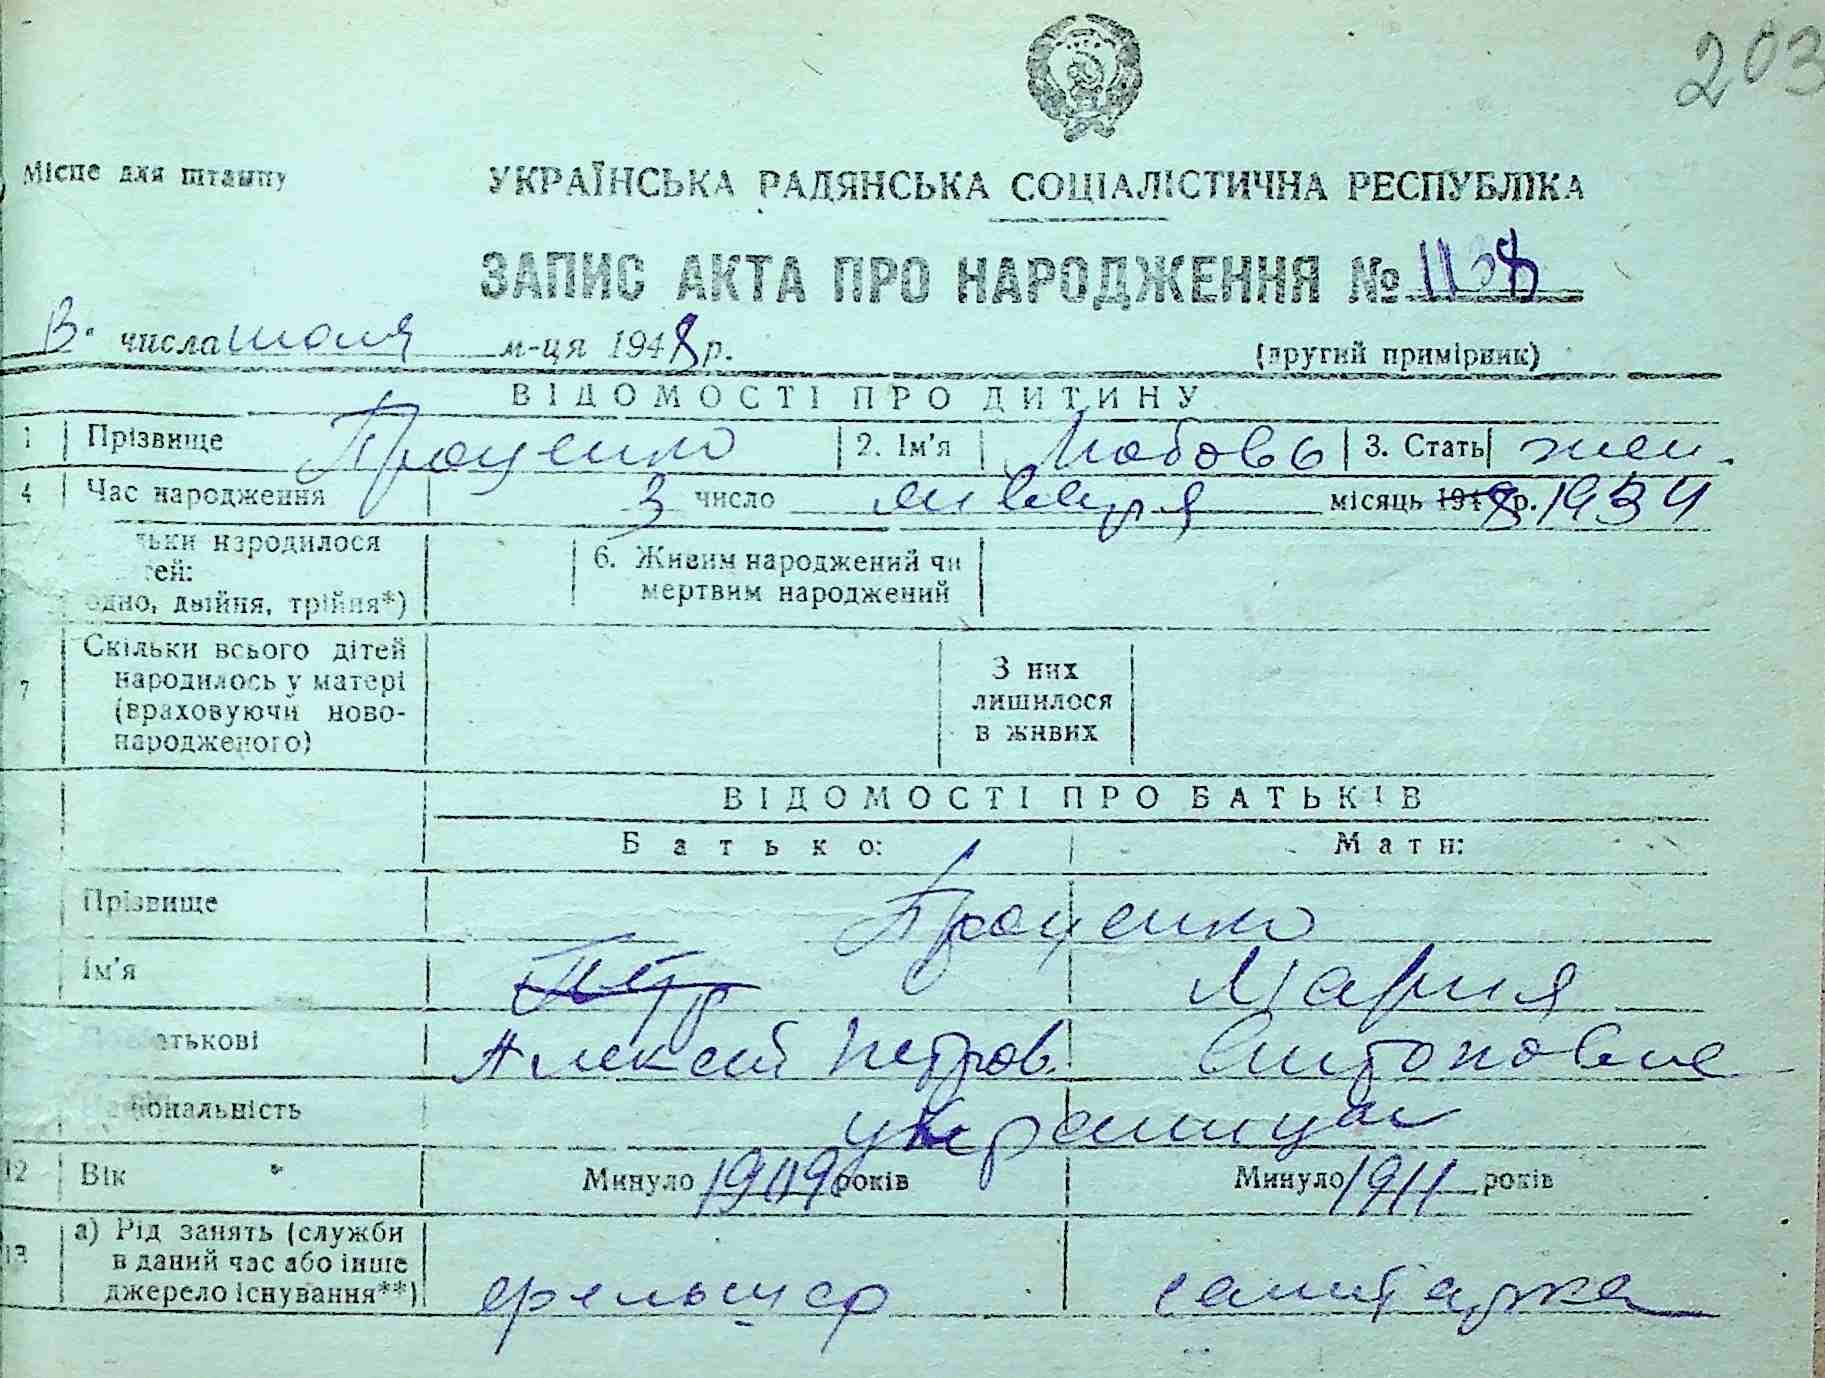 203
Місце для штампу
УКРАЇНСЬКА РАДЯНСЬКА СОЦІАЛІСТИЧНА РЕСПУБЛІКА
ЗАПИС АКТА ПРО НАРОДЖЕННЯ № 1138
В. числа июля м-ця 1948 р. (другий примірник)
ВІДОМОСТІ ПРО ДИТИНУ
1 Прізвище Проценко 2. Ім'я Любовь 3. Стать жен.
4 Час народження 3 число января місяць 1948 р. 1934
льки народилося
тей:
одно, двійня, трійня*)
6. Живим народжений чи
мертвим народжений
7 Скільки всього дітей
народилось у матері
(враховуючи ново-
народженого)
З них
лишилося
в живих
ВІДОМОСТІ ПРО БАТЬКІВ
Батько: Мати:
Прізвище Проценко
Ім'я Петр Мария
атькові Алексей Петров. Антоновна
ональність украинцы
12 Вік Минуло 1909 років Минуло 1911 років
13 а) Рід занять (служби
в даний час або інше
джерело існування**)
фельшер санитарка